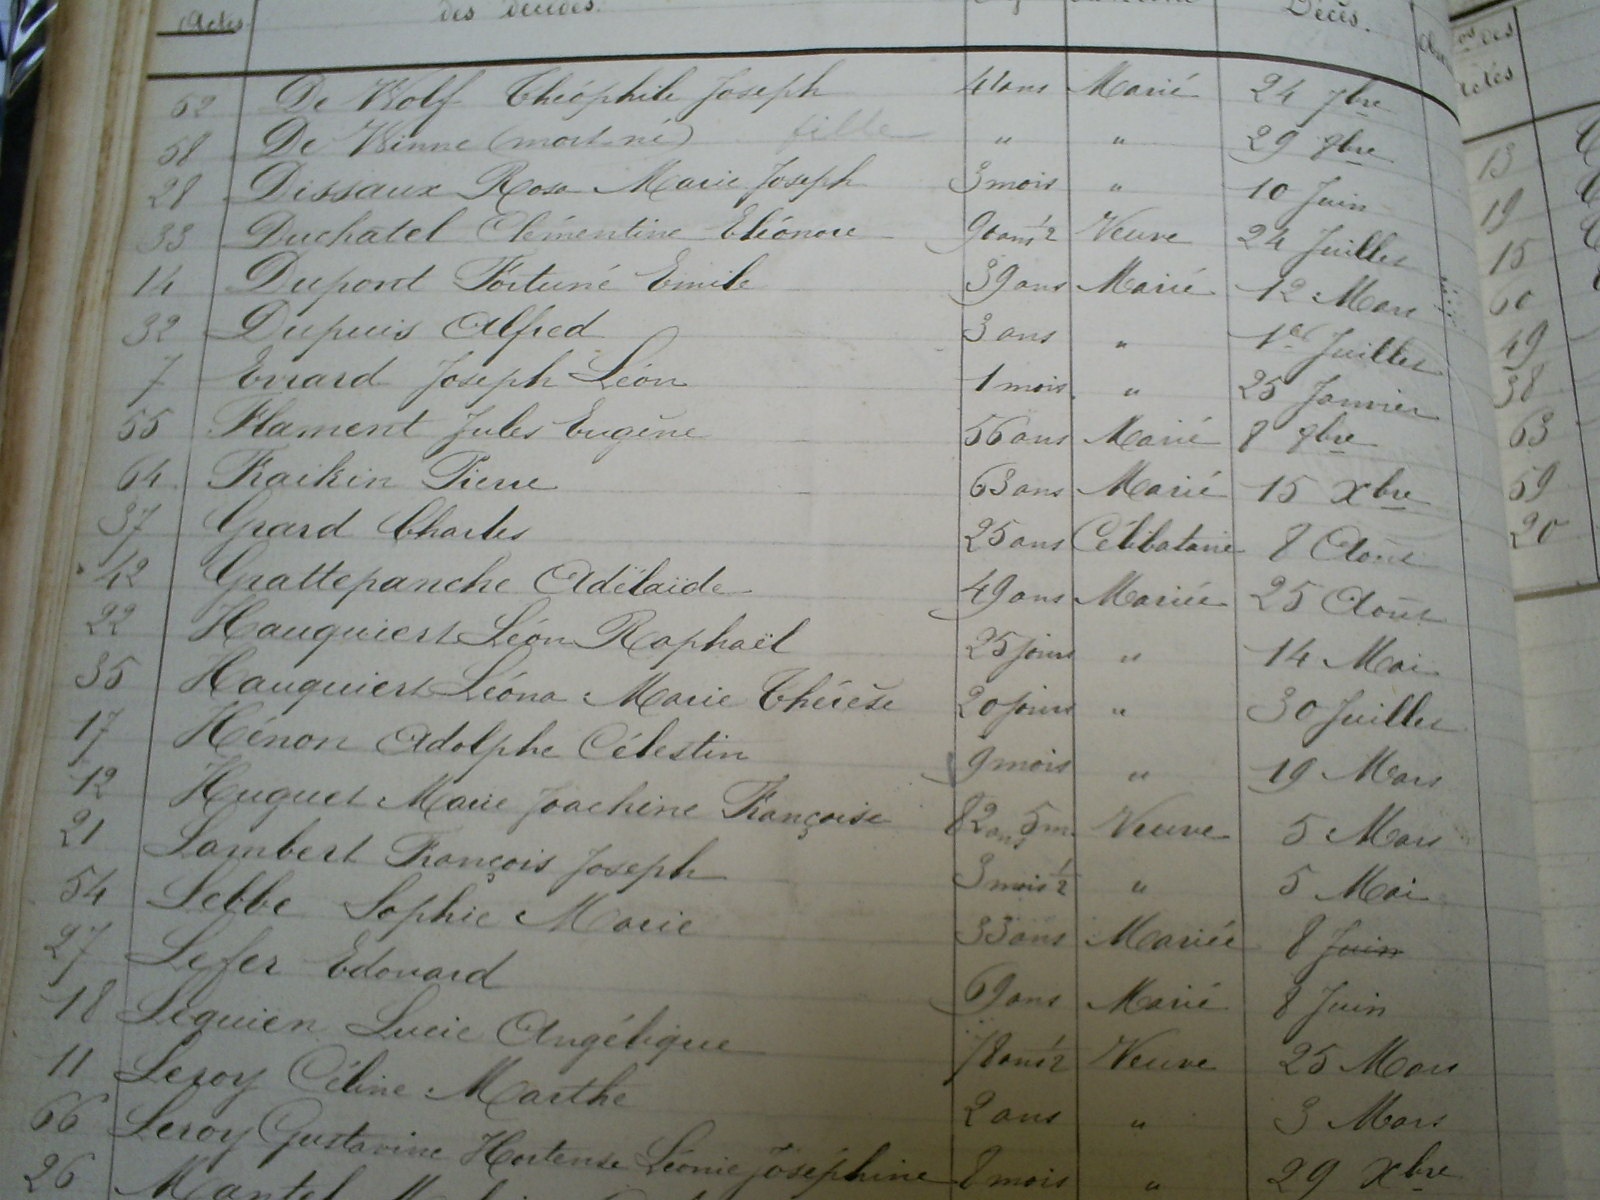 Actes des décédés. Décès.
52 De Wolf Théophile Joseph 41 ans Marié 24 7bre
58 De Winne (mort-né) fille " " 29 9bre
28 Dissaux Rosa Marie Joseph 3 mois " 10 Juin
33 Duchatel Clémentine Eléonore ans 1/2 Veuve 24 Juillet
14 Dupont Fortuné Emile 39 ans Marié 12 Mars
32 Dupuis Alfred 3 ans " 1er Juillet
7 Evrard Joseph Léon 1 mois " 25 Janvier
55 Flament Jules Eugène 56 ans Marié 8 9bre
64 Fraikin Pierre 63 ans Marié 15 Xbre
37 Grard Charles 25 ans Célibataire 8 Août
42 Grattepanche Adélaïde 49 ans Mariée 25 Août
22 Hauquiert Léon Raphaël 25 jours " 14 Mai
35 Hauquiert Léona Marie Thérèse 20 jours " 30 Juillet
17 Hénon Adolphe Célestin 9 mois " 19 Mars
12 Huguet Marie Joachine Françoise 82 ans 5 m. Veuve 5 Mars
21 Lambert François Joseph 3 mois 1/2 " 5 Mai
54 Lebbe Sophie Marie 33 ans Mariée 8 Juin
27 Lefer Edouard 69 ans Marié 8 Juin
18 Lequien Lucie Angélique 78 ans 1/2 Veuve 25 Mars
11 Leroy Céline Marthe 2 ans " 3 Mars
66 Leroy Gustavine Hortense Léonie Joséphine 8 mois " 29 Xbre
26 Mantel
os des
Actes
13
19
15
60
49
38
63
59
20